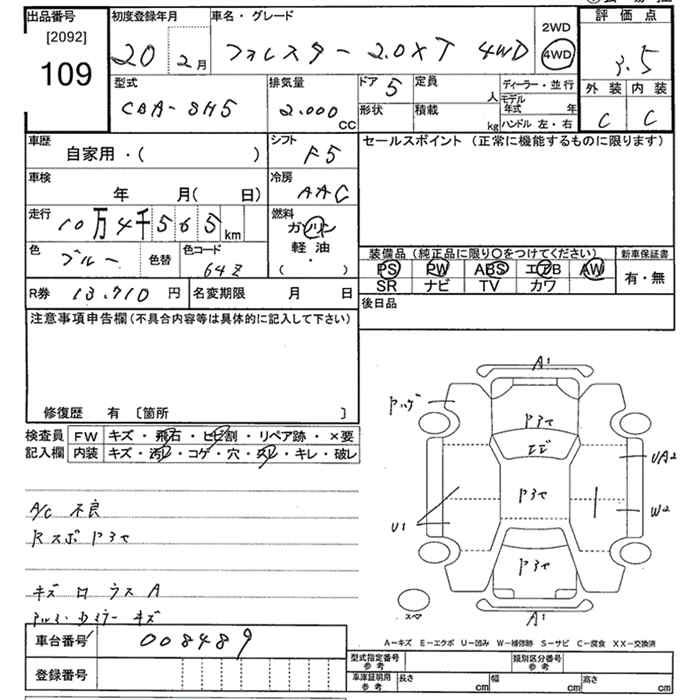 出品番号
[2092]
109
初度登録年月
20 2月
車名・グレード
フォレスター 2.0XT 4WD
2WD
4WD
評価点
3.5
外装 内装
C C
型式
CBA-SH5
排気量
2.000 CC
ドア 5
定員 人
形状
積載 kg
ディーラー・並行
モデル年式 年
ハンドル 左・右
車歴
自家用・( )
シフト
F5
セールスポイント (正常に機能するものに限ります)
車検
年 月( 日)
冷房
AAC
走行
10万4千565km
燃料
ガソリン
軽油
( )
色
ブルー
色替
色コード
64Z
装備品(純正品に限り○をつけてください)
新車保証書
PS PW ABS エアB AW
SR ナビ TV カワ
有・無
R券 13.710 円
名変期限 月 日
後日品
注意事項申告欄(不具合内容等は具体的に記入して下さい)
修復歴 有 〔箇所 〕
検査員
記入欄
FW キズ・飛石・ヒビ割・リペア跡・×要
内装 キズ・汚レ・コゲ・穴・スレ・キレ・破レ
A/C 不良
Rスポ
キズ
ウス A
キズ
車台番号
008489
登録番号
A1
エビ
UA2
W2
U1
A1
スペ
A-キズ E-エクボ U-凹み W-補修跡 S-サビ C-腐食 XX-交換済
型式指定番号 参考
類別区分番号 参考
車庫証明用 参考
長さ cm
幅 cm
高さ cm